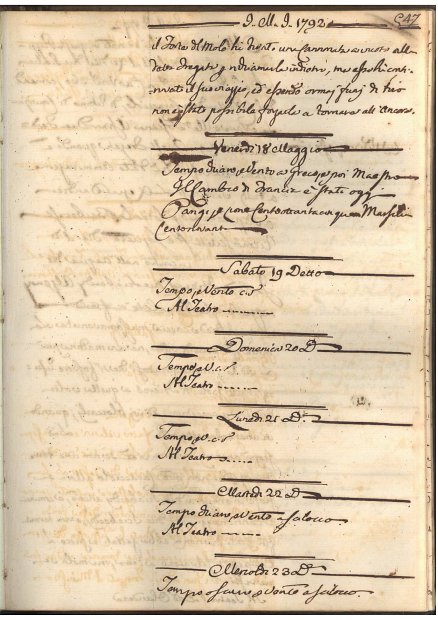 J. M. J. 1792
il Forte del Molo li hà tirato una cannonata a vuoto alla
dette fregate
nuato il suo viaggio, ed essendo ormai fuori di tiro
non è stato possibile forzarle a tornare all'ancora.
Venerdì 18 Maggio
Tempo chiaro, e Vento a Greco, e poi Maestro
Il Cambio di Francia è stato oggi
Parigi, e cione Centotrentacinque in Marsilia
Centovant
Sabato 19 Detto
Tempo, e Vento c. s.
Al Teatro
Domenica 20 D.
Tempo, e V. c. s.
Al Teatro
Lunedì 21 D.
Tempo, e V. c. s.
Al Teatro
Martedì 22 D.
Tempo chiaro, e Vento a scilocco
Al Teatro
Mercoldì 23 D.
Tempo oscuro, e Vento a scilocco.